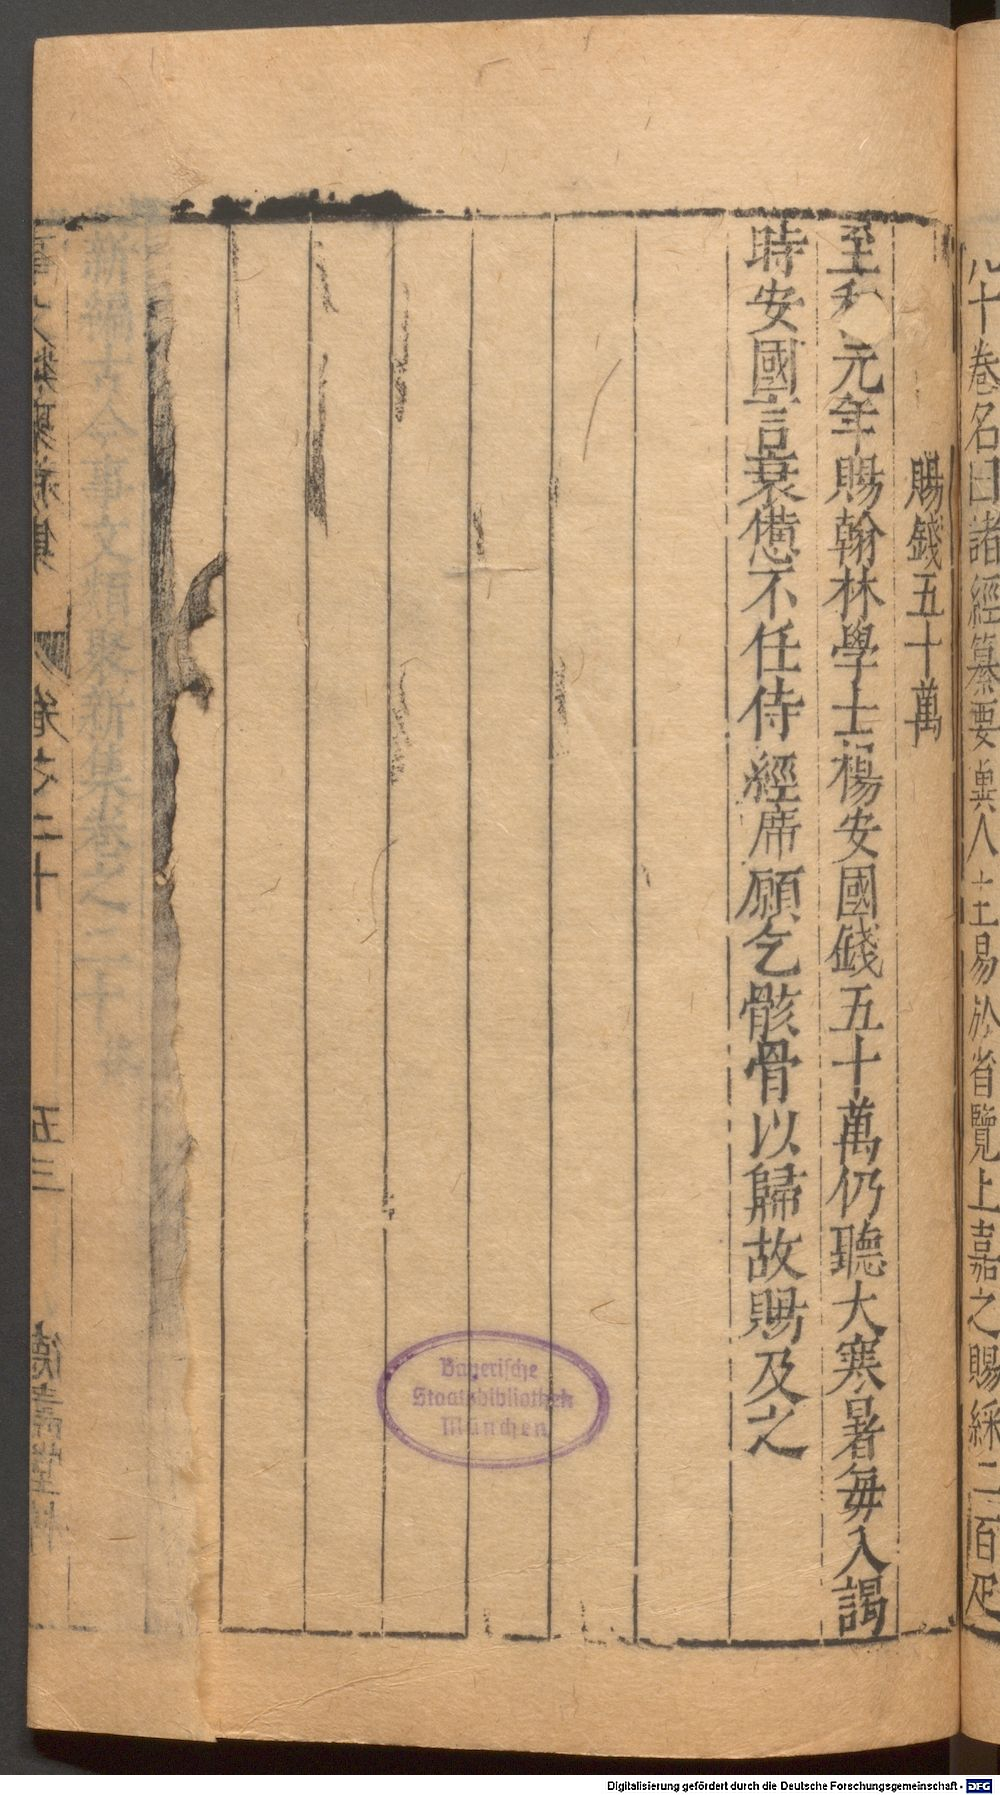 十卷名曰諸經纂要異人主易於省覽上嘉之賜綵二百疋
賜錢五十萬
至和元年賜翰林學士楊安國錢五十萬仍聽大寒暑毎入謁
時安國言衰憊不任侍經席願乞骸骨以歸故賜及之
新編古今事文類聚新集卷之二十
卷之二十
五三
德壽堂
Bayerische
Staatsbibliothek
München
Digitalisierung gefördert durch die Deutsche Forschungsgemeinschaft - DFG